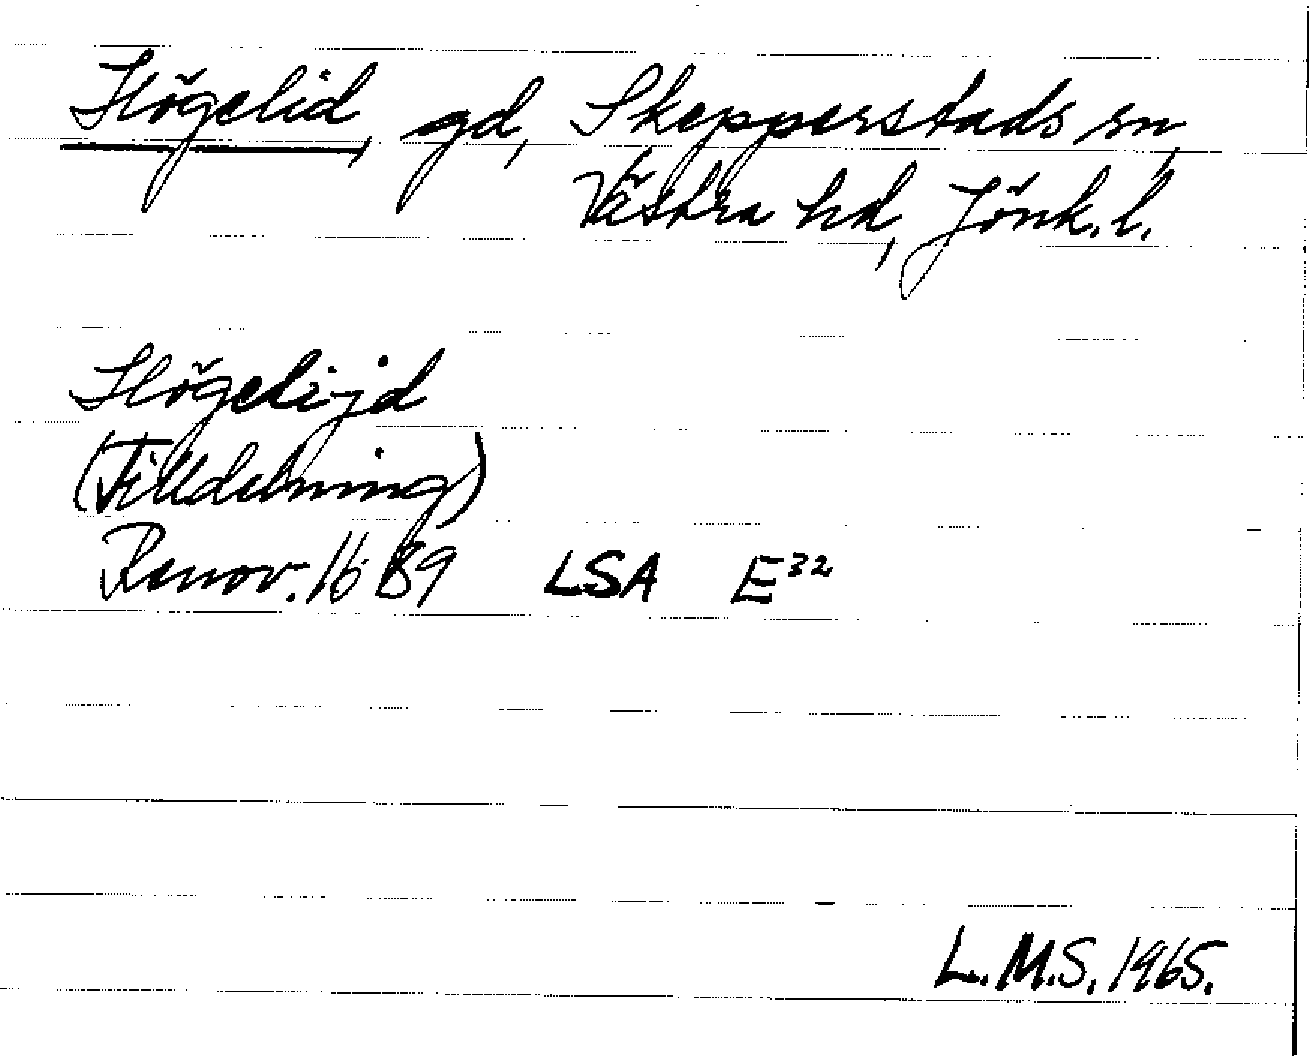 Högelid, gd, Skepperstads sn,
Västra hd, Jönk. l.
Högelijd
(Tilldelning)
Renov. 1689 LSA E³²
L.M.S. 1965.